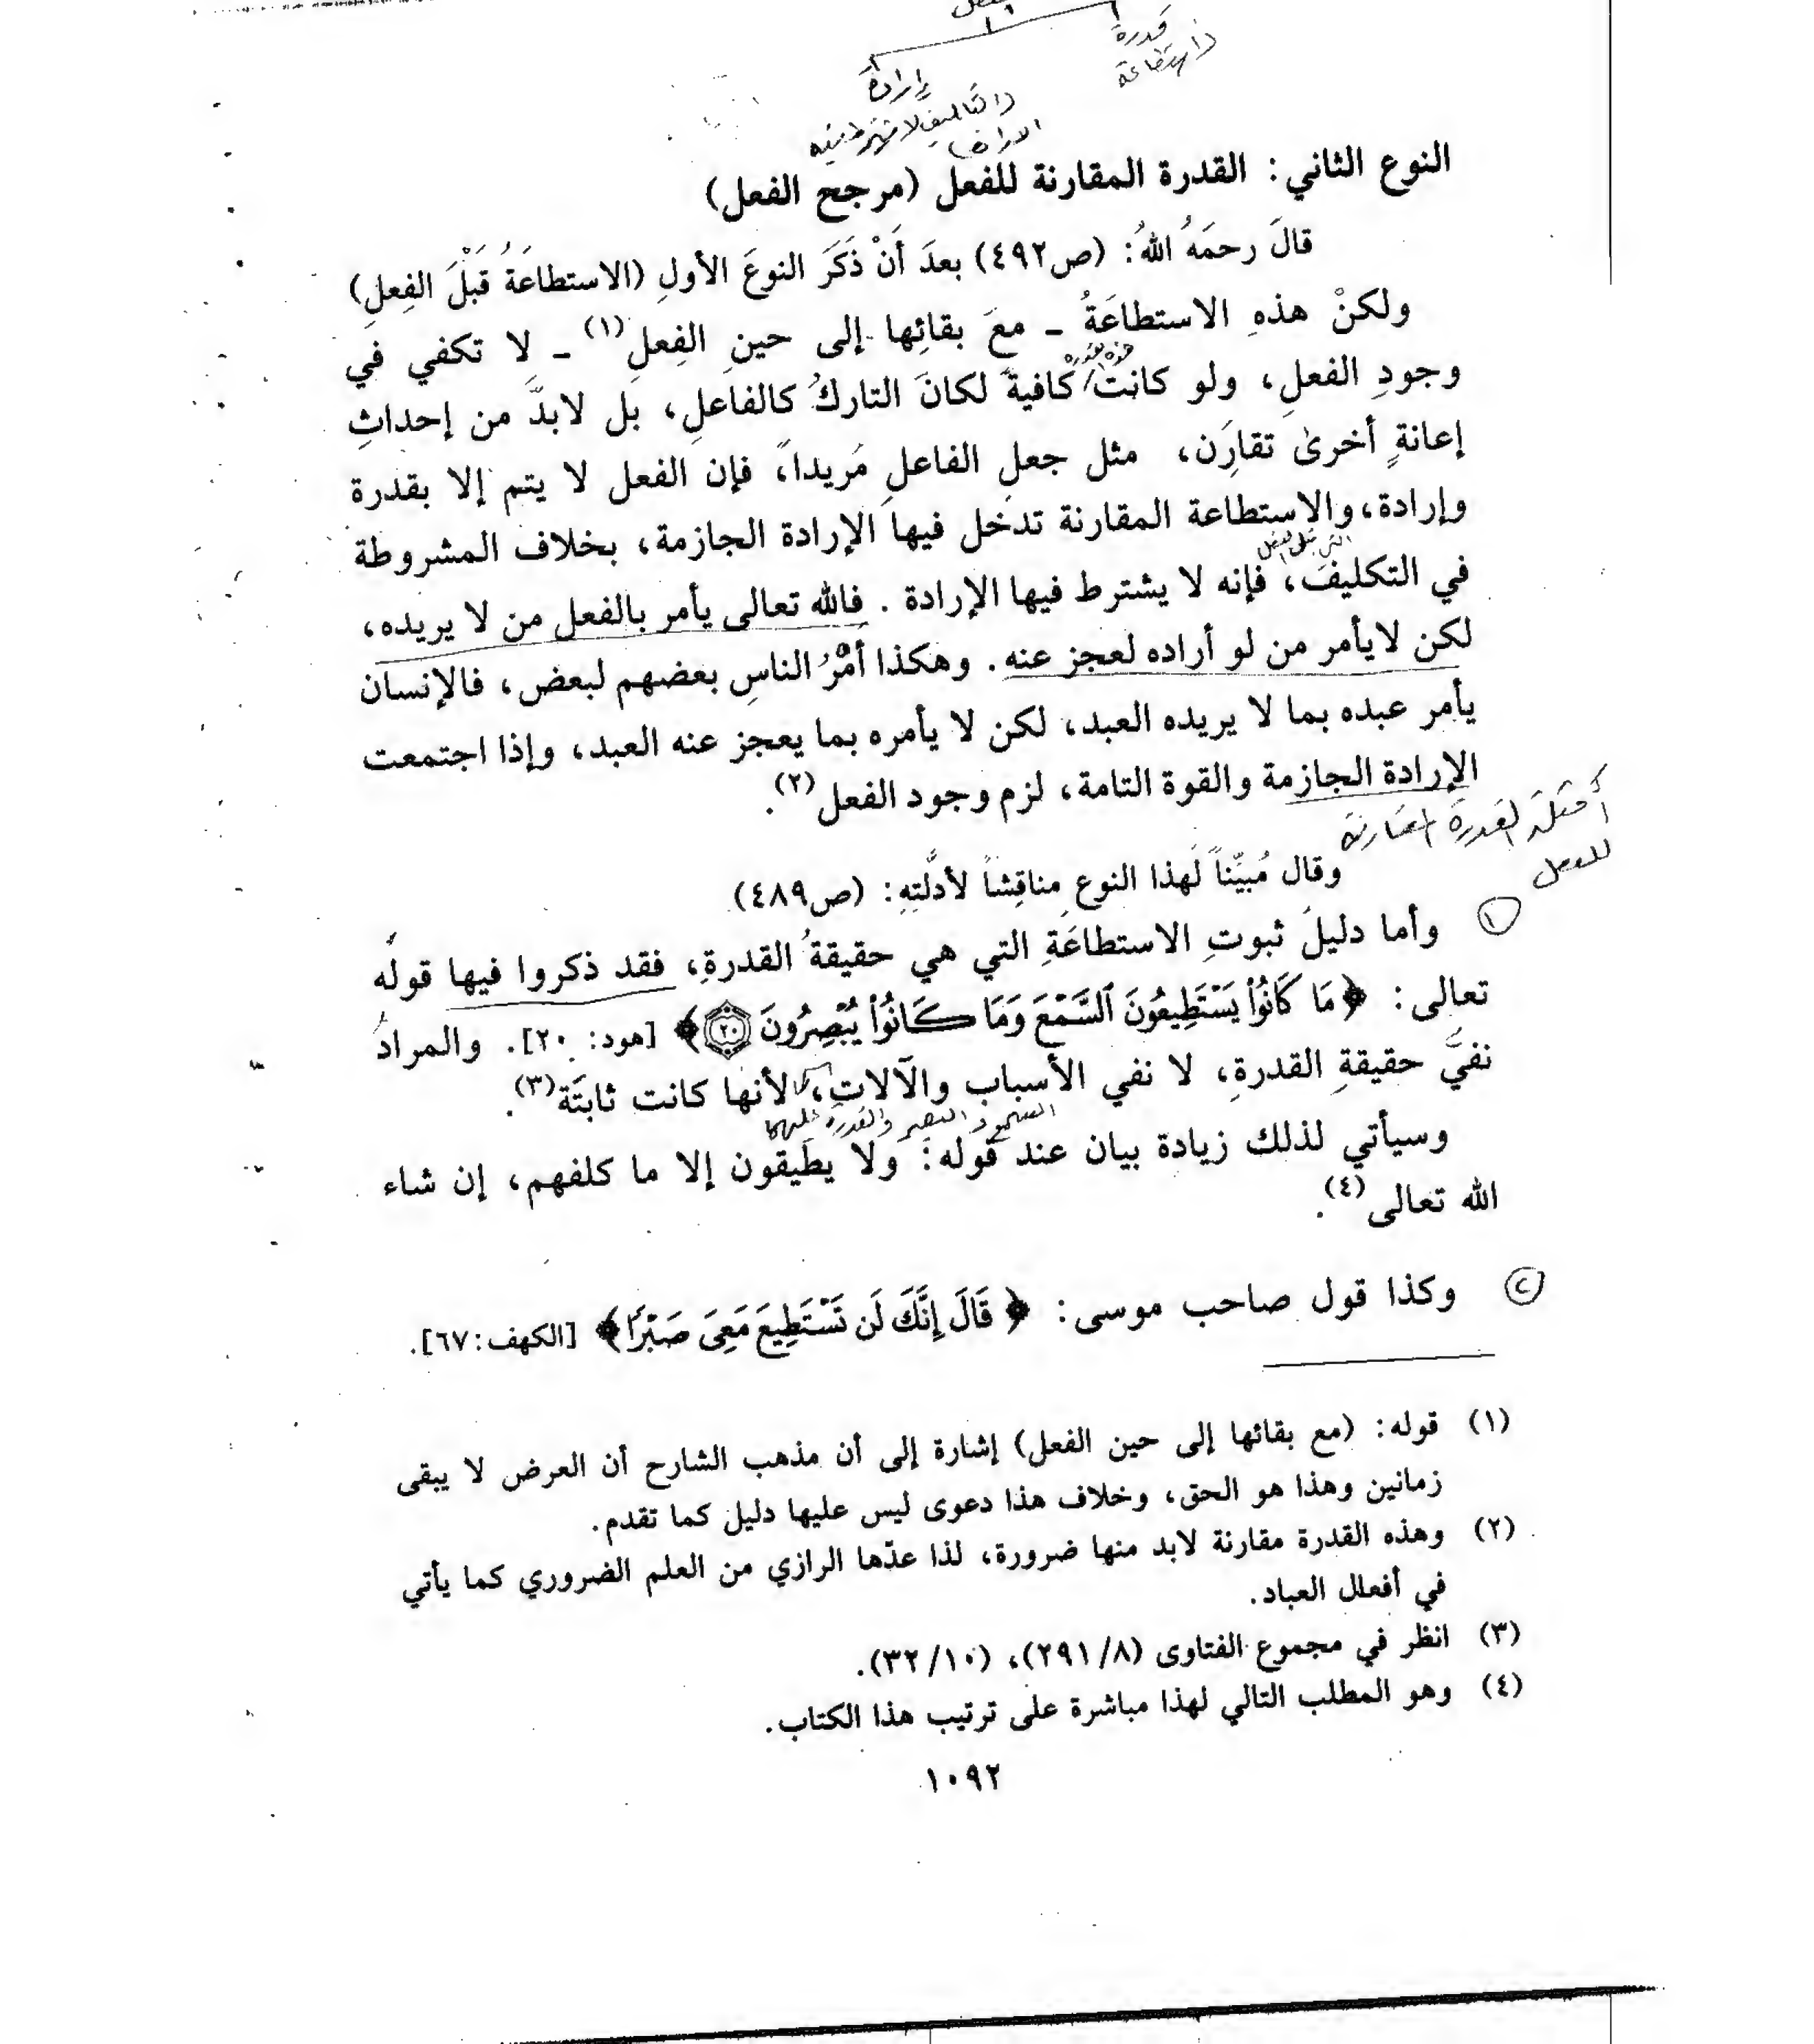 قدرة
إرادة
النوع الثاني: القدرة المقارنة للفعل (مرجح الفعل)
قالَ رحمَهُ اللهُ: (ص٤٩٢) بعدَ أَنْ ذَكَرَ النوعَ الأولِ (الاستطاعَةُ قَبْلَ الفِعلِ)
ولكنْ هذهِ الاستطاعَةُ - معَ بقائِها إلى حينِ الفِعلِ(١) - لا تكفي في
وجودِ الفعلِ، ولو كانتْ كافيةً لكانَ التاركُ كالفاعلِ، بل لابدَّ من إحداثِ
إعانةٍ أخرىٰ تقارِن، مثل جعلِ الفاعلِ مَريداً، فإن الفعل لا يتم إلا بقدرة
وإرادة، والاستطاعة المقارنة تدخل فيها الإرادة الجازمة، بخلاف المشروطة
التي قبل الفعل
في التكليف، فإنه لا يشترط فيها الإرادة. فالله تعالى يأمر بالفعل من لا يريده،
لكن لايأمر من لو أراده لعجز عنه. وهكذا أمْرُ الناسِ بعضهم لبعض، فالإنسان
يأمر عبده بما لا يريده العبد، لكن لا يأمره بما يعجز عنه العبد، وإذا اجتمعت
الإرادة الجازمة والقوة التامة، لزم وجود الفعل(٢).
أمثلة القدرة المقارنة
للفعل
وقال مُبيِّناً لهذا النوعِ مناقِشاً لأدلَّتِهِ: (ص٤٨٩)
١ وأما دليلُ ثبوتِ الاستطاعَةِ التي هي حقيقةُ القدرةِ، فقد ذكروا فيها قولَه
تعالى: ﴿مَا كَانُوا۟ يَسْتَطِيعُونَ ٱلسَّمْعَ وَمَا كَانُوا۟ يُبْصِرُونَ ٢٠﴾ [هود: ٢٠]. والمرادُ
نفيُ حقيقةِ القدرةِ، لا نفي الأسباب والآلاتِ، لأنها كانت ثابتَة(٣).
السمع و البصر والقدرة عليهما
وسيأتي لذلك زيادة بيان عند قوله: ولا يطيقون إلا ما كلفهم، إن شاء
الله تعالى(٤).
٢ وكذا قول صاحب موسى: ﴿قَالَ إِنَّكَ لَن تَسْتَطِيعَ مَعِىَ صَبْرًا﴾ [الكهف: ٦٧].
(١) قوله: (مع بقائها إلى حين الفعل) إشارة إلى أن مذهب الشارح أن العرض لا يبقى
زمانين وهذا هو الحق، وخلاف هذا دعوى ليس عليها دليل كما تقدم.
(٢) وهذه القدرة مقارنة لابد منها ضرورة، لذا عدّها الرازي من العلم الضروري كما يأتي
في أفعال العباد.
(٣) انظر في مجموع الفتاوى (٨/ ٢٩١)، (١٠/ ٣٢).
(٤) وهو المطلب التالي لهذا مباشرة على ترتيب هذا الكتاب.
١٠٩٢